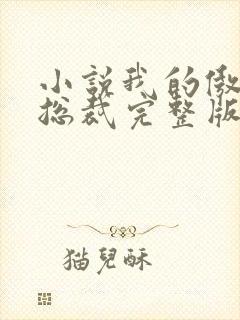 小說我的傲
总裁完整版
猫兒酥